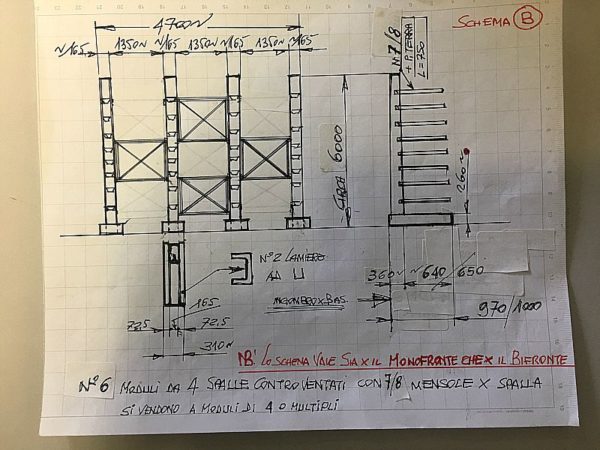 SCHEMA B
4700~
~165 1350~ ~165 1350~ ~165 1350~ ~165
N° 7/8
+ P. TERRA
L=750
CIRCA 6000
260~
N°2 LAMIERE
AD U
165
72,5 72,5
310~
INGOMBRO X BAS.
360~ ~640/650
970/1000
NB: LO SCHEMA VALE SIA X IL MONOFRONTE CHE X IL BIFRONTE
N°6 MODULI DA 4 SPALLE CONTROVENTATI CON 7/8 MENSOLE X SPALLA
SI VENDONO A MODULI DI 4 O MULTIPLI